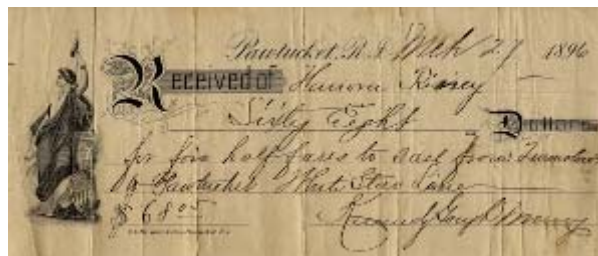 Pawtucket, R.I. Mch 27 1896
Received of Hanora
Sixty Eight Dollars
for five half fares to and from
to Pawtucket White Star Line
$68.05